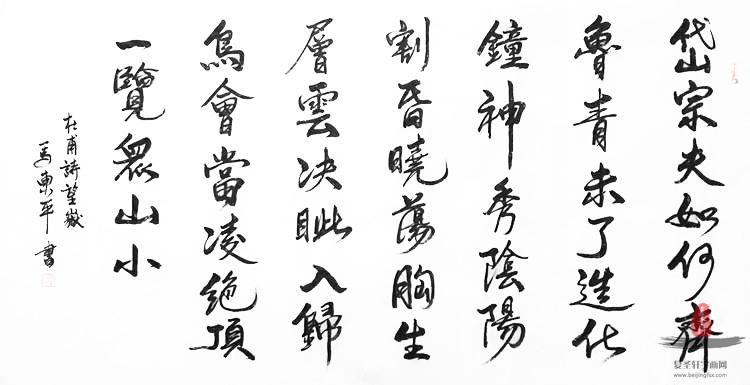 岱宗夫如何齊
魯青未了造化
鐘神秀陰陽
割昏曉蕩胸生
層雲决眦入歸
鳥會當凌絕頂
一覽眾山小
杜甫詩望嶽
馬東平書
复圣轩字画网
www.beijingfsx.com